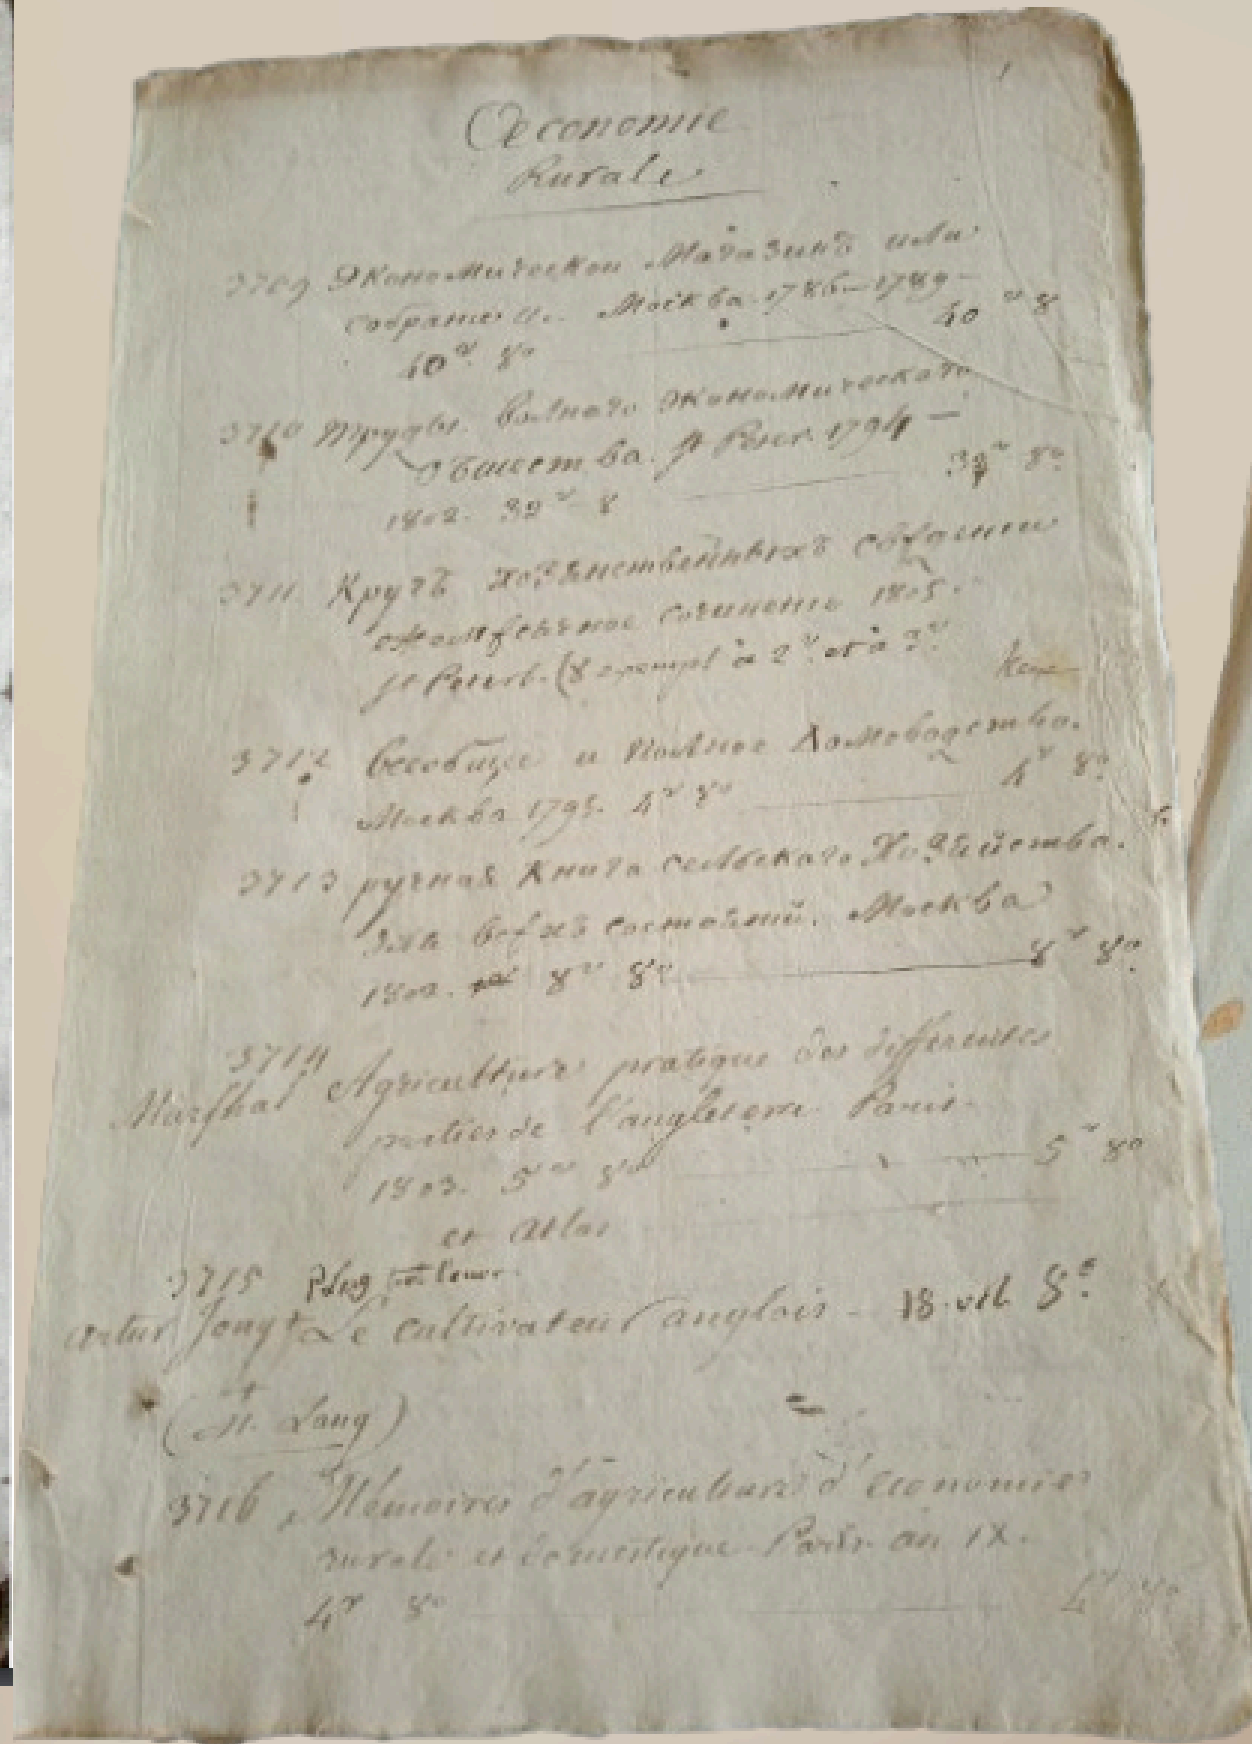 Oeconomie
Rurale
3709 Экономической Магазинъ или
собрание Москва 1786–1789 –
40 v 8º 40 v 8
3710 Труды вольнаго Экономическаго
Общества. St Peter. 1794 –
1802. 32 v 8 8º
3711 Кругъ хозяйственныхъ сведении
ежемѣсячное сочинение 1805.
St Petersb. (8 exempl à 2 v et à 3 v
3712 Всеобщее и полное Домоводство.
Москва 1795. 4 v 8º 4 v 8º
3713 ручная Книга сельскаго Хозяйства.
для всѣхъ состояний. Москва
1802. 8 v 8º 8 v 8º
3714
Marshal Agriculture pratique des differentes
parties de l'angleterre Paris
1803. 5 v 8º 5 v 8º
et Atlas
3715
Artur Le cultivateur anglois – 18. vol. 8º
3716 Mémoires d'agriculture d'economie
rurale et domestique Paris an IX.
4 v 8º 4 v 8º